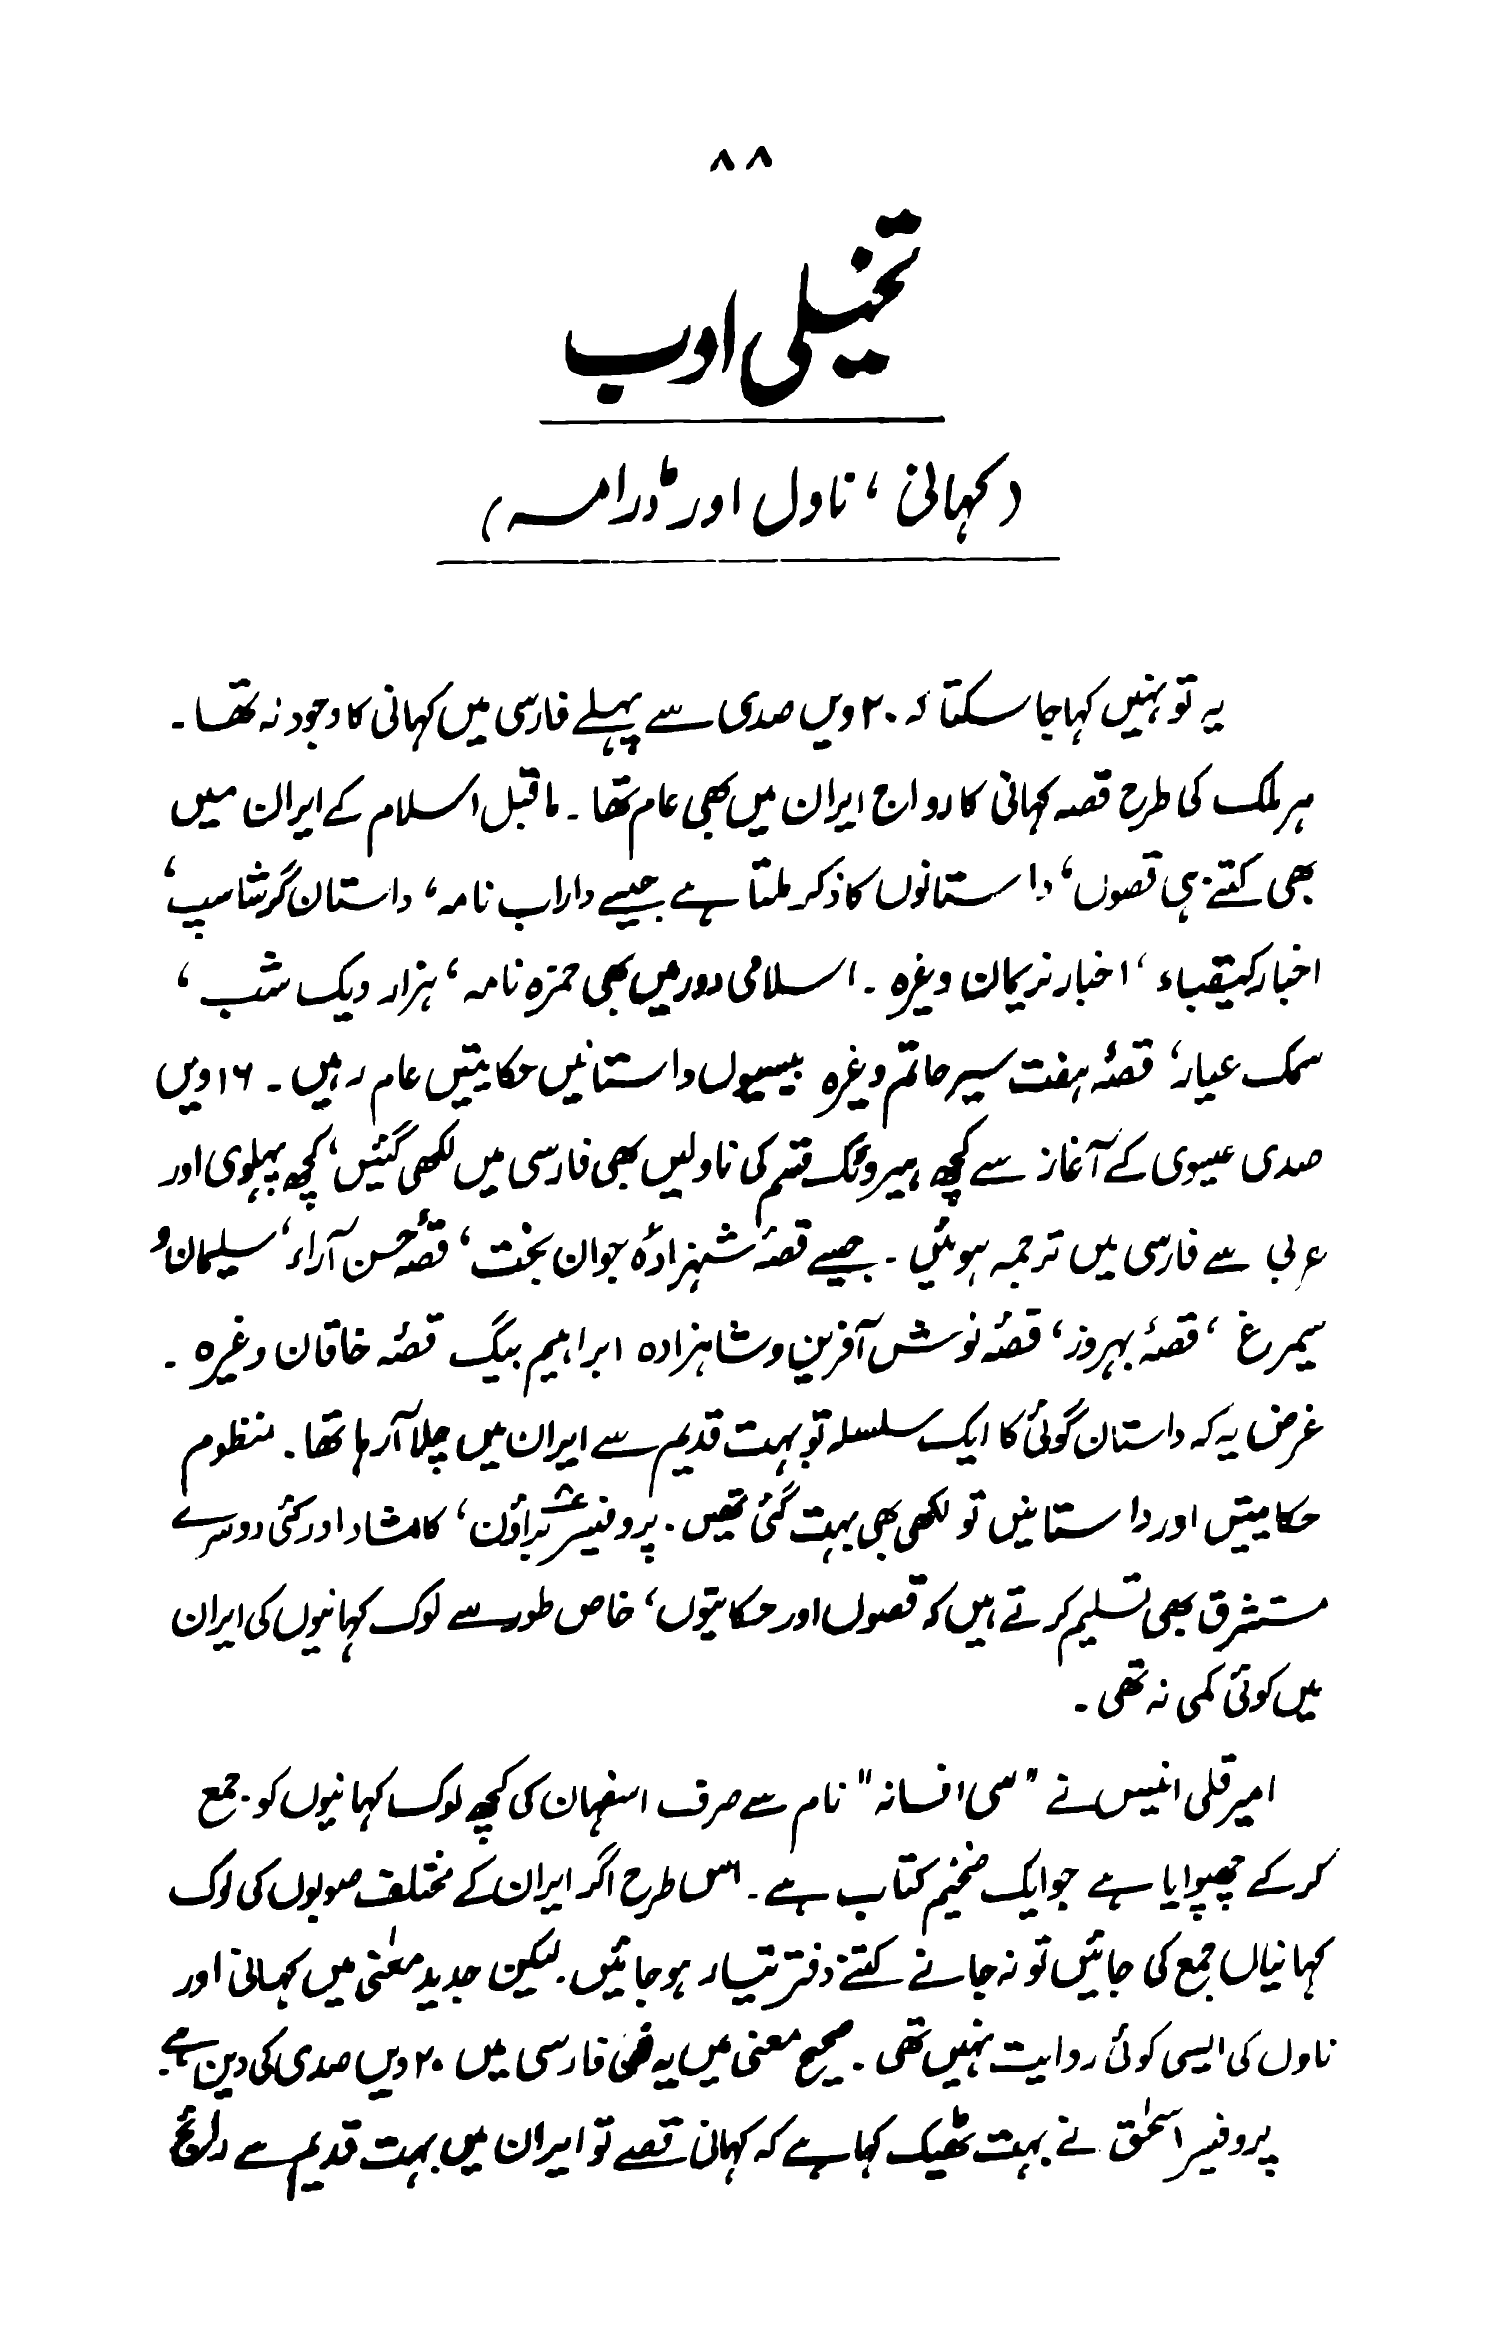 ۸۸
تخیلی ادب
(کہانی، ناول اور ڈرامہ)
یہ تو نہیں کہا جا سکتا کہ ۲۰ویں صدی سے پہلے فارسی میں کہانی کا وجود نہ تھا۔
ہر ملک کی طرح قصہ کہانی کا رواج ایران میں بھی عام تھا۔ ماقبل اسلام کے ایران میں
بھی کتنے ہی قصوں، داستانوں کا ذکر ملتا ہے جیسے داراب نامہ، داستان گرشاسپ،
اخبار کیقباء، اخبار نریمان وغیرہ۔ اسلامی دور میں بھی حمزہ نامہ، ہزار ویک شب،
سمک عیار، قصۂ ہفت سیر حاتم وغیرہ بیسیوں داستانیں حکایتیں عام رہیں۔ ۱۶ویں
صدی عیسوی کے آغاز سے کچھ ہیروئک قسم کی ناولیں بھی فارسی میں لکھی گئیں، کچھ پہلوی اور
عربی سے فارسی میں ترجمہ ہوئیں۔ جیسے قصۂ شہزادۂ جوان بخت، قصۂ حسن آراء، سلیمان و
سیمرغ، قصۂ بہروز، قصۂ نوش آفرین وشاہزادہ ابراہیم بیگ قصۂ خاقان وغیرہ۔
غرض یہ کہ داستان گوئی کا ایک سلسلہ تو بہت قدیم سے ایران میں چلا آ رہا تھا۔ منظوم
حکایتیں اور داستانیں تو لکھی بھی بہت گئی تھیں۔ پروفیسر براؤن، کامشاد اور کئی دوسرے
مستشرق بھی تسلیم کرتے ہیں کہ قصوں اور حکایتوں، خاص طور سے لوک کہانیوں کی ایران
میں کوئی کمی نہ تھی۔
امیر قلی انیس نے "سی افسانہ" نام سے صرف اصفہان کی کچھ لوک کہانیوں کو جمع
کر کے چھپوایا ہے جو ایک ضخیم کتاب ہے۔ اس طرح اگر ایران کے مختلف صوبوں کی لوک
کہانیاں جمع کی جائیں تو نہ جانے کتنے دفتر تیار ہو جائیں۔ لیکن جدید معنٰی میں کہانی اور
ناول کی ایسی کوئی روایت نہیں تھی۔ صحیح معنی میں یہ فن فارسی میں ۲۰ویں صدی کی دین ہے۔
پروفیسر اسحٰق نے بہت ٹھیک کہا ہے کہ کہانی قصے تو ایران میں بہت قدیم سے رائج